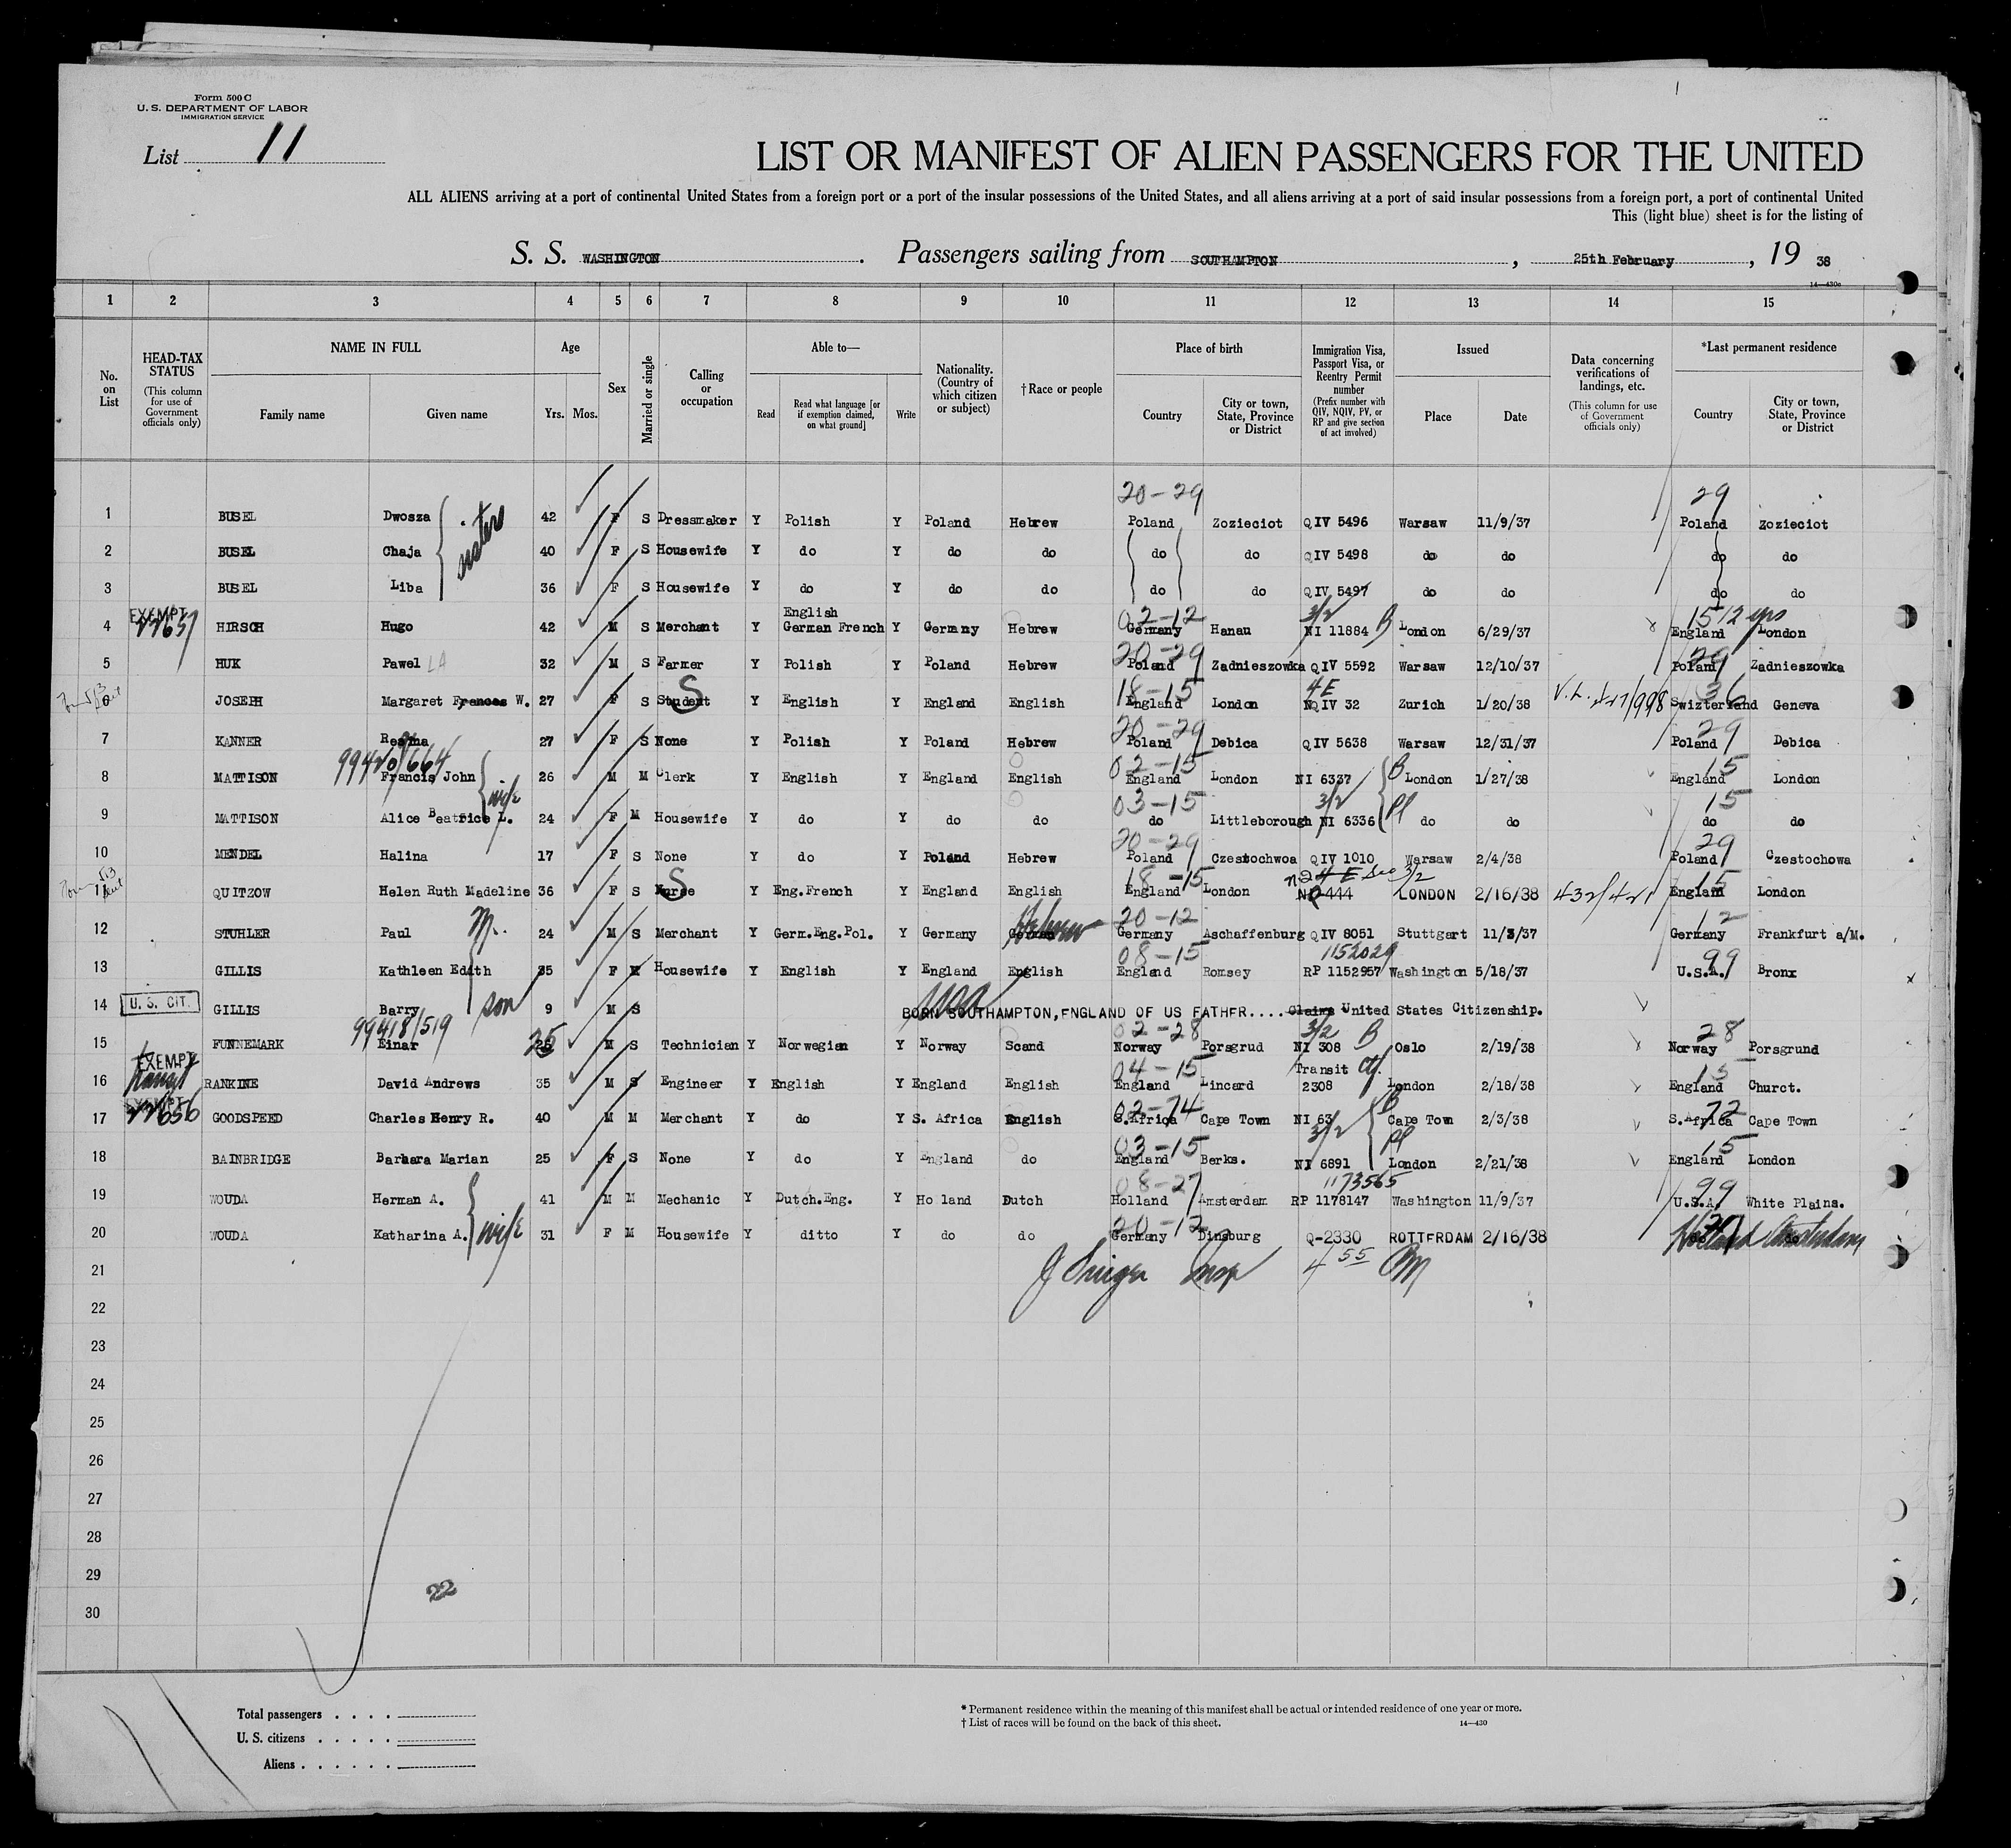 Form 500 C
U. S. DEPARTMENT OF LABOR
IMMIGRATION SERVICE
List 11
LIST OR MANIFEST OF ALIEN PASSENGERS FOR THE UNITED
ALL ALIENS arriving at a port of continental United States from a foreign port or a port of the insular possessions of the United States, and all aliens arriving at a port of said insular possessions from a foreign port, a port of continental United
This (light blue) sheet is for the listing of
S. S. WASHINGTON . Passengers sailing from SOUTHAMPTON , 25th February , 19 38
14—430c
1 2 3 4 5 6 7 8 9 10 11 12 13 14 15
No. on List
HEAD-TAX STATUS (This column for use of Government officials only)
NAME IN FULL Family name Given name
Age Yrs. Mos.
Sex
Married or single
Calling or occupation
Able to— Read Read what language [or if exemption claimed, on what ground] Write
Nationality. (Country of which citizen or subject)
† Race or people
Place of birth Country City or town, State, Province or District
Immigration Visa, Passport Visa, or Reentry Permit number (Prefix number with QIV, NQIV, PV, or RP and give section of act involved)
Issued Place Date
Data concerning verifications of landings, etc. (This column for use of Government officials only)
*Last permanent residence Country City or town, State, Province or District
20-29 29
1 BUSEL Dwosza 42 F S Dressmaker Y Polish Y Poland Hebrew Poland Zozieciot QIV 5496 Warsaw 11/9/37 Poland Zozieciot
sisters
2 BUSEL Chaja 40 F S Housewife Y do Y do do do do QIV 5498 do do do do
3 BUSEL Liba 36 F S Housewife Y do Y do do do do QIV 5497 do do do do
EXEMPT 22657 English 02-12 3/2 15 12 yrs
4 HIRSCH Hugo 42 M S Merchant Y German French Y Germany Hebrew Germany Hanau NI 11884 B London 6/29/37 England London
20-29 29
5 HUK Pawel LA 32 M S Farmer Y Polish Y Poland Hebrew Poland Zadnieszowka QIV 5592 Warsaw 12/10/37 Poland Zadnieszowka
S 18-15 4E 36
6 JOSEPH Margaret Frances W. 27 F S Student Y English Y England English England London NQIV 32 Zurich 1/20/38 Swizterland Geneva
20-29 29
7 KANNER Regina 27 F S None Y Polish Y Poland Hebrew Poland Debica QIV 5638 Warsaw 12/31/37 Poland Debica
99420/664 02-15 15
8 MATTISON Francis John 26 M M Clerk Y English Y England English England London NI 6337 B London 1/27/38 England London
wife 03-15 3/2 Pl 15
9 MATTISON Alice Beatrice L. 24 F M Housewife Y do Y do do do Littleborough NI 6336 do do do do
20-29 29
10 MENDEL Halina 17 F S None Y do Y Poland Hebrew Poland Czestochwoa QIV 1010 Warsaw 2/4/38 Poland Czestochowa
S 18-15 4 E Sec 3/2 15
11 QUITZOW Helen Ruth Madeline 36 F S Nurse Y Eng.French Y England English England London NQ 444 LONDON 2/16/38 432/421 England London
M. Hebrew 20-12 12
12 STUHLER Paul 24 M S Merchant Y Germ.Eng.Pol. Y Germany German Germany Aschaffenburg QIV 8051 Stuttgart 11/3/37 Germany Frankfurt a/M.
08-15 1152029 99
13 GILLIS Kathleen Edith 35 F M Housewife Y English Y England English England Romsey RP 1152957 Washington 5/18/37 U.S.A. Bronx
U. S. CIT. son USA
14 GILLIS Barry 9 M S BORN SOUTHAMPTON,ENGLAND OF US FATHER.... Claims United States Citizenship.
99418/519 25 02-28 3/2 B 28
15 FUNNEMARK Einar 26 M S Technician Y Norwegian Y Norway Scand Norway Porsgrud NI 308 Oslo 2/19/38 Norway Porsgrund
EXEMPT transit 04-15 Transit 15
16 RANKINE David Andrews 35 M S Engineer Y English Y England English England Lincard 2308 London 2/18/38 England Churct.
EXEMPT 22656 02-74 B 72
17 GOODSPEED Charles Henry R. 40 M M Merchant Y do Y S. Africa English S.Africa Cape Town NI 63 Cape Town 2/3/38 S.Africa Cape Town
03-15 3/2 Pl 15
18 BAINBRIDGE Barbara Marian 25 F S None Y do Y England do England Berks. NI 6891 London 2/21/38 England London
08-27 1173565 99
19 WOUDA Herman A. 41 M M Mechanic Y Dutch.Eng. Y Holland Dutch Holland Amsterdam RP 1178147 Washington 11/9/37 U.S.A. White Plains.
wife 20-12 Holland Amsterdam
20 WOUDA Katharina A. 31 F M Housewife Y ditto Y do do Germany Dinsburg Q-2330 ROTTERDAM 2/16/38
21 J Singer Insp 4 55 PM
22
23
24
25
26
27
28
29
22
30
Total passengers . . . .
U. S. citizens . . . . .
Aliens . . . . . .
* Permanent residence within the meaning of this manifest shall be actual or intended residence of one year or more.
† List of races will be found on the back of this sheet. 14—430